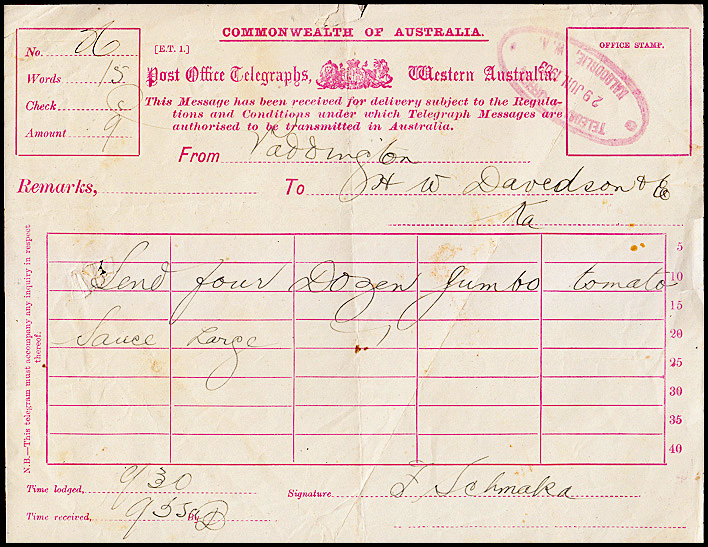 COMMONWEALTH OF AUSTRALIA.
[E.T. 1.]
No.
Words 15
Check
Amount 9
Post Office Telegraphs, Western Australia.
OFFICE STAMP.
KALGOORLIE, W.A.
29 JUN
This Message has been received for delivery subject to the Regula-
tions and Conditions under which Telegraph Messages are
authorised to be transmitted in Australia.
From Paddington
Remarks, To H W Davedson & Co
Ka
N.B.—This telegram must accompany any inquiry in respect
thereof.
5
Send four Dozen Jumbo tomato 10
15
Sauce Large 20
25
30
35
40
Time lodged, 9 30
Signature J Schmaka
Time received, 9 55a By